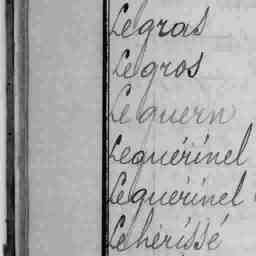 Legras
Legros
Le guern
Leguérinel
Leguérinel
Le hérissé